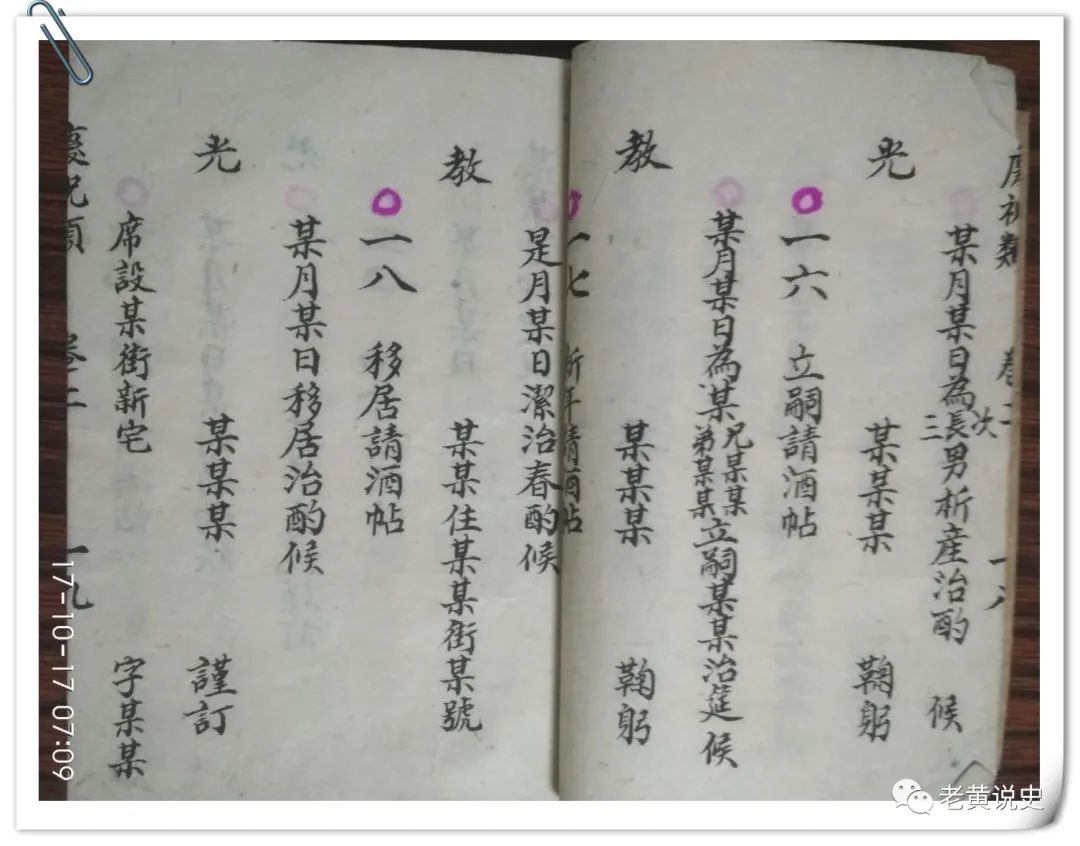 慶祝類 卷二 一八
某月某日為長次三男析產治酌 候
光 某某某 鞠躬
一六 立嗣請酒帖
某月某日為某兄某某弟某某立嗣某某治筵候
教 某某某 鞠躬
一七 新年請酒帖
是月某日潔治春酌候
教 某某住某某街某號
一八 移居請酒帖
某月某日移居治酌候
光 某某某 謹訂
席設某街新宅 字某某
慶祝類 卷二 一九
17-10-17 07:09
老黄说史